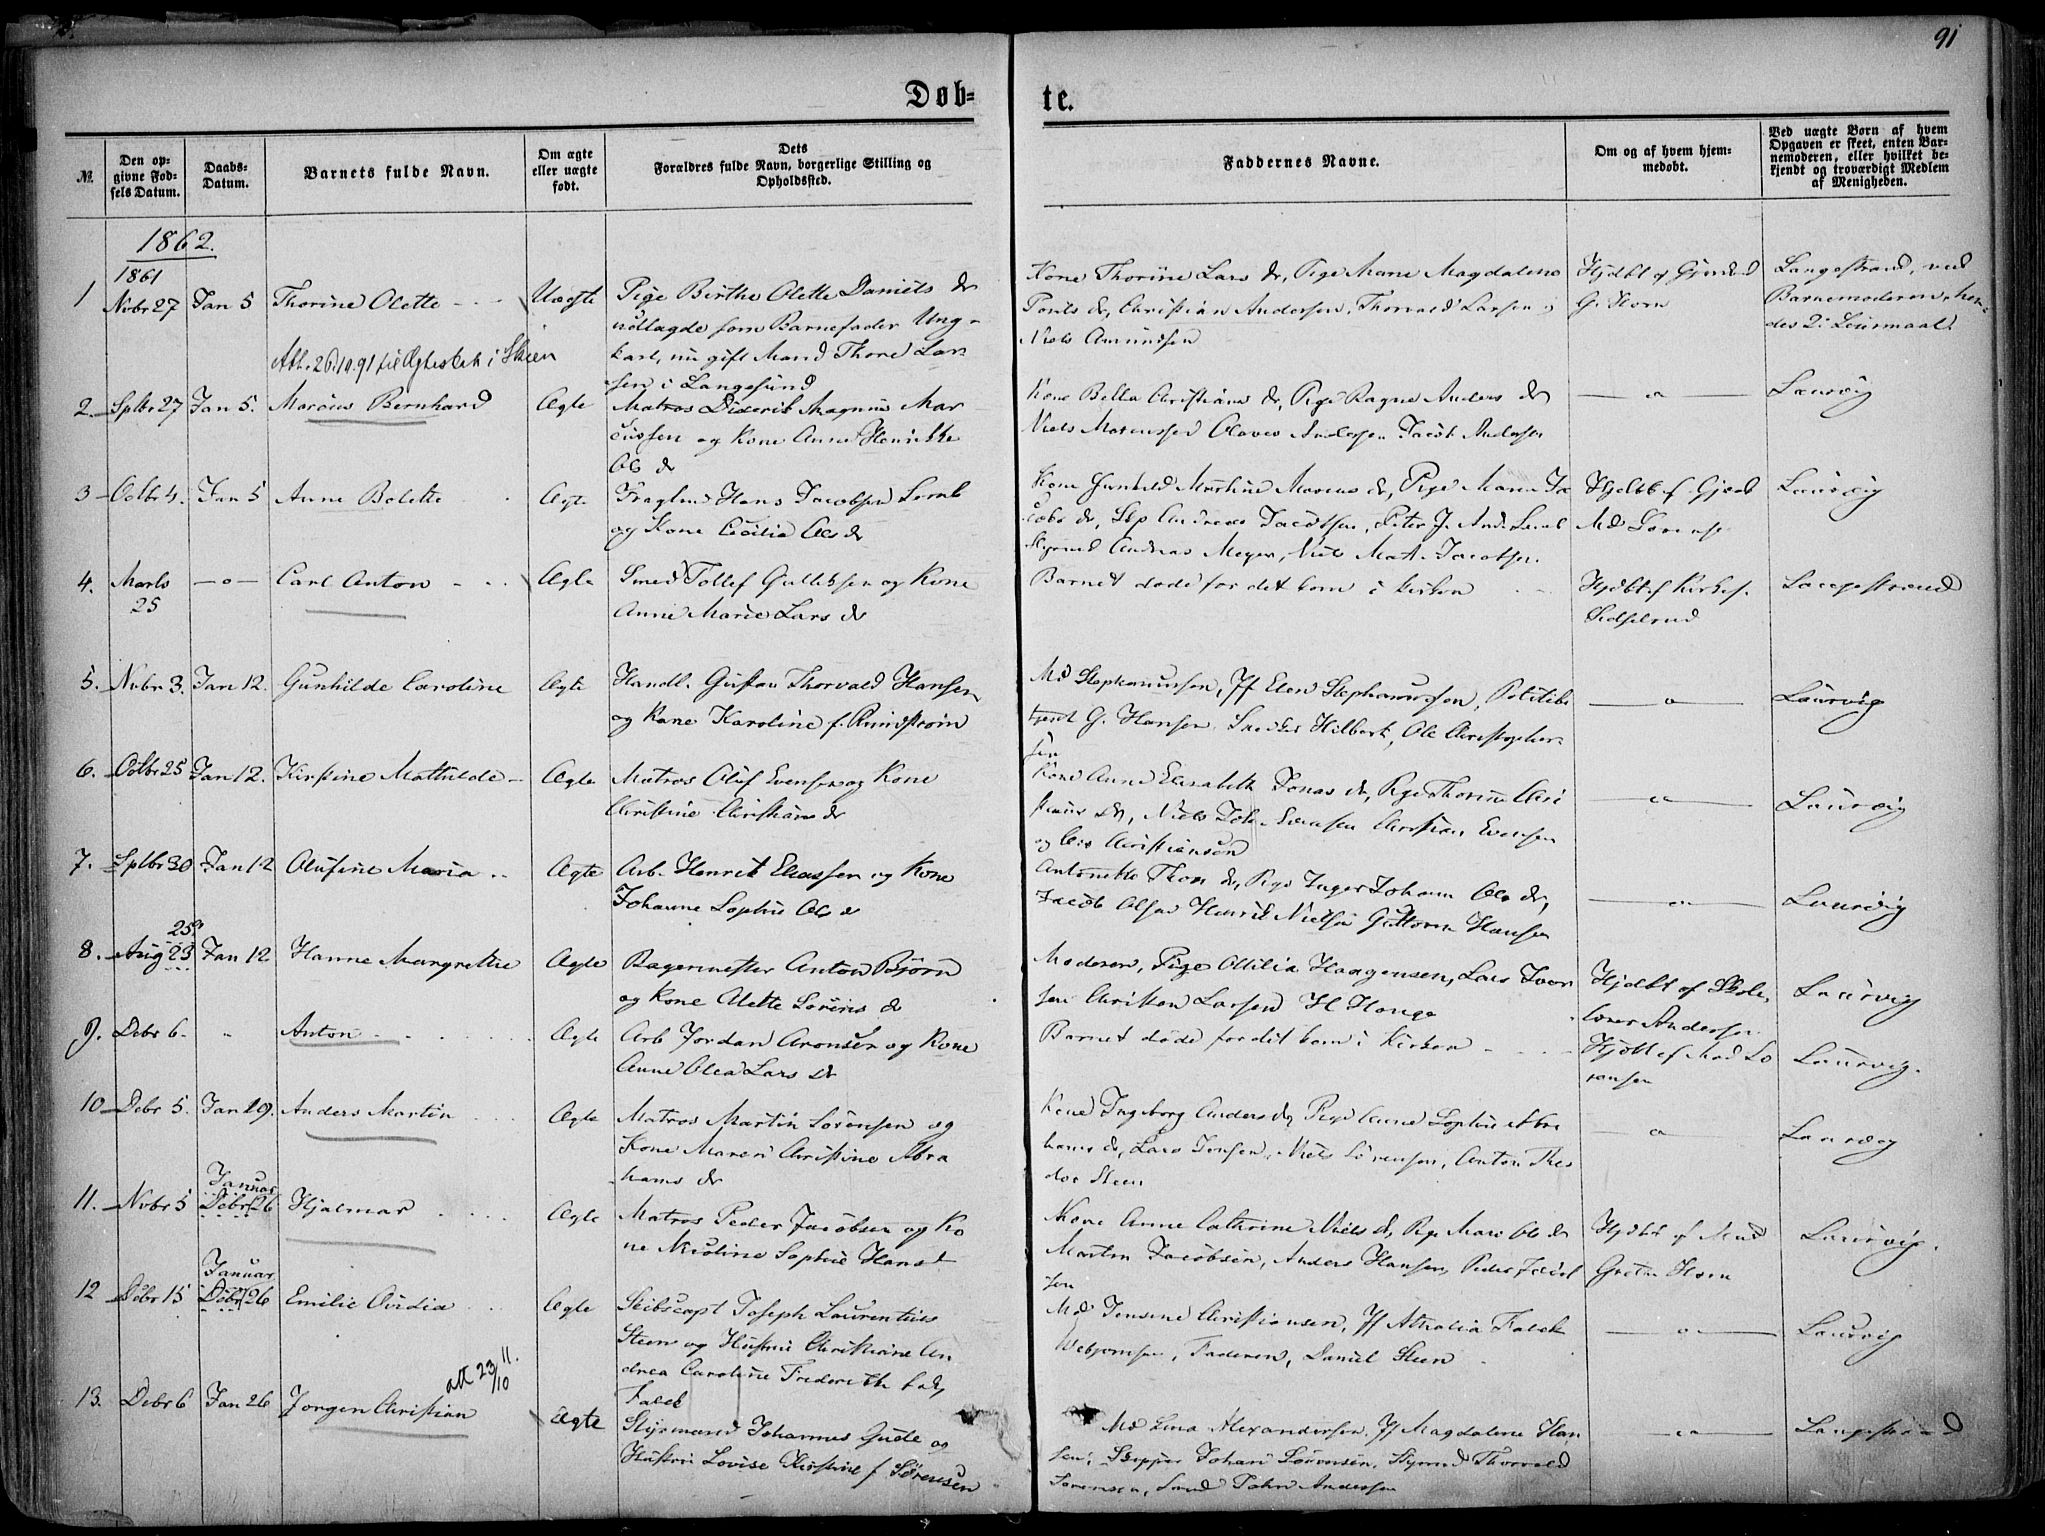 91
Døb=
te.
№.
Den op=
givne Fød=
sels Datum.
Daabs=
Datum.
Barnets fulde Navn.
Om ægte
eller uægte
født.
Dets
Forældres fulde Navn, borgerlige Stilling og
Opholdssted.
Faddernes Navne.
Om og af hvem hjem=
medøbt.
Ved uægte Børn af hvem
Opgaven er skeet, enten Bar=
nemoderen, eller hvilket be=
kjendt og troværdigt Medlem
af Menigheden.
1862.
1861
1 Nvbr 27 Jan 5 Thorine Olette Uægte Pige Birthe Olette Daniels dr
udlagde som Barnefader Ung-
karl, nu gift Mand Thore Lar-
sen i Langesund
Att. 26.10.91 til Ægteskab i Skien
Kone Thorine Lars dr, Pige Maren Magdalene
Pouls dr, Christian Andersen, Thorvald Larsen,
Niels Amundsen
G. Horn
Langestrand, ved
Barnemoderen, hen-
des 2. Leiermaal.
2. Sptbr 27 Jan 5. Marcus Bernhard Ægte Matros Diderik Magnus Mar
cussen og Kone Anne Henrikke
Ols dr
Kone Bella Christians dr, Pige Ragne Anders dr
Niels Marcussen Olaves Andersen Jacob Andersen
— " — Laurvig
3 Octbr 4. Jan 5 Anne Bolette Ægte Fragtmd Hans Jacobsen Lomb
og Kone Cecilia Ols dr
Kone Gunhild Martine Marcus dr, Pige Maren Ja
cobs dr, Skp Andreas Jacobsen, Peter J. And.
Styrmd Andreas Meyer, Niels Mat. Jacobsen.
Laurvig
4. Marts
25
—o— Carl Anton Ægte Smed Tollef Gulliksen og Kone
Anne Marie Lars dr
Barnet døde før det kom i Kirken
Hjdbt af Kirkes.
Langestrand
5. Nvbr 3. Jan 12. Gunhilde Caroline Ægte Handl. Gustav Thorvald Hansen
og Kone Karoline f. Rundstrøm
Md Stephanussen, Jf Elen Stephanussen, Politibe
tjent G. Hansen, Snedker Hilbert, Ole Christopher-
sen
—o— Laurvig
6. Octbr 25 Jan 12. Kirstine Mathilde Ægte Matros Oluf Evensen og Kone
Christine Christians dr
Kone Anne Elisabeth Jonas dr, Pige Thorine Chri
stians dr, Niels Joh. Evensen Christian Evensen
og Christiansen
— " — Laurvig
7. Sptbr 30 Jan 12 Olufine Maria Ægte Arb. Henrik Eliassen og Kone
Johanne Sophie Ols dr
Antonette Thors dr, Pige Inger Johann Ols dr,
Jacob Olsen Henrik Nielsen Guttorm Hansen
— " — Laurvig
25
8. Aug 23 Jan 12 Hanne Margrethe Ægte Bagermester Anton Bjørn
og Kone Alette Sørens dr
Moderen, Pige Ottilia Haagensen, Lars Ivar
sen Christen Larsen H Hauge
Hjdbt af Skole-
lærer Andersen
Laurvig
9. Debr 6. " Anton Ægte Arb Jordan Aronsen og Kone
Anne Olea Lars dr
Barnet døde før det kom i Kirken
Hjdbt af Mad So
rensen
Laurvig.
10 Debr 5. Jan 19. Anders Martin Ægte Matros Martin Sørensen og
Kone Maren Christine Abra
hams dr
Kone Ingeborg Anders dr, Pige Anne Sophie Abra
hams dr, Lars Jensen, Niels Sørensen, Anton Theo
dor Steen
—o— Laurvig
Januar
11. Nvbr 5 Debr 26 Hjalmar Ægte Matros Peder Jacobsen og Ko
ne Nicoline Sophie Hans d
Kone Anne Cathrine Niels dr, Pige Mare Ols dr
Martin Jacobsen, Anders Hansen, Peder Jacob
sen
Hjdbt af Mad
Grethe Horn
Laurvig.
Januar
12 Debr 15 Debr 26 Emilie Ovidia Ægte Skibscapt Joseph Laurentius
Steen og Hustru Christiane An
drea Caroline Frederikke født
Falck
Md Jensine Christiansen, Jf Athalia Falck
Webjørnsen, Faderen, Daniel Steen
—o— Laurvig
att 23/10 11.
13. Debr 6 Jan 26 Jørgen Christian Ægte Styrmand Johannes Gude og
Hustru Lovise Christine f Sørensen
Md Lina Alexandersen, Jf Magdalene Han
sen, Skipper Johan Sørensen, Styrmd Thorvald
Sørensen, Smed John Andersen
— " — Langestrand